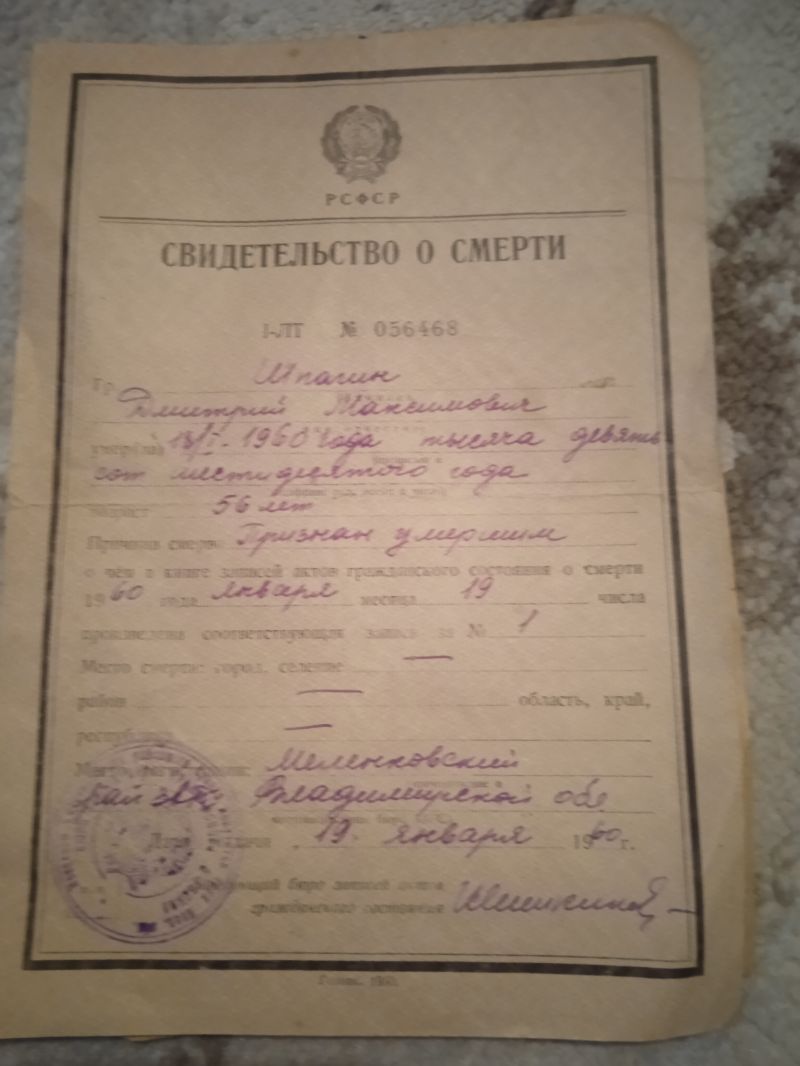 РСФСР
СВИДЕТЕЛЬСТВО О СМЕРТИ
I-ЛТ № 056468
Гр. Шпагин
Дмитрий Максимович
умер(ла) 13/I-1960 года тысяча девять
сот шестидесятого года
возраст 56 лет
Причина смерти Признан умершим
о чём в книге записей актов гражданского состояния о смерти
1960 года января месяца 19 числа
произведена соответствующая запись за № 1
Место смерти: город, селение —
район — область, край,
республика —
Меленковский
рай загс Владимирской обл
Дата выдачи 19 января 1960 г.
Заведующий бюро записей актов
гражданского состояния